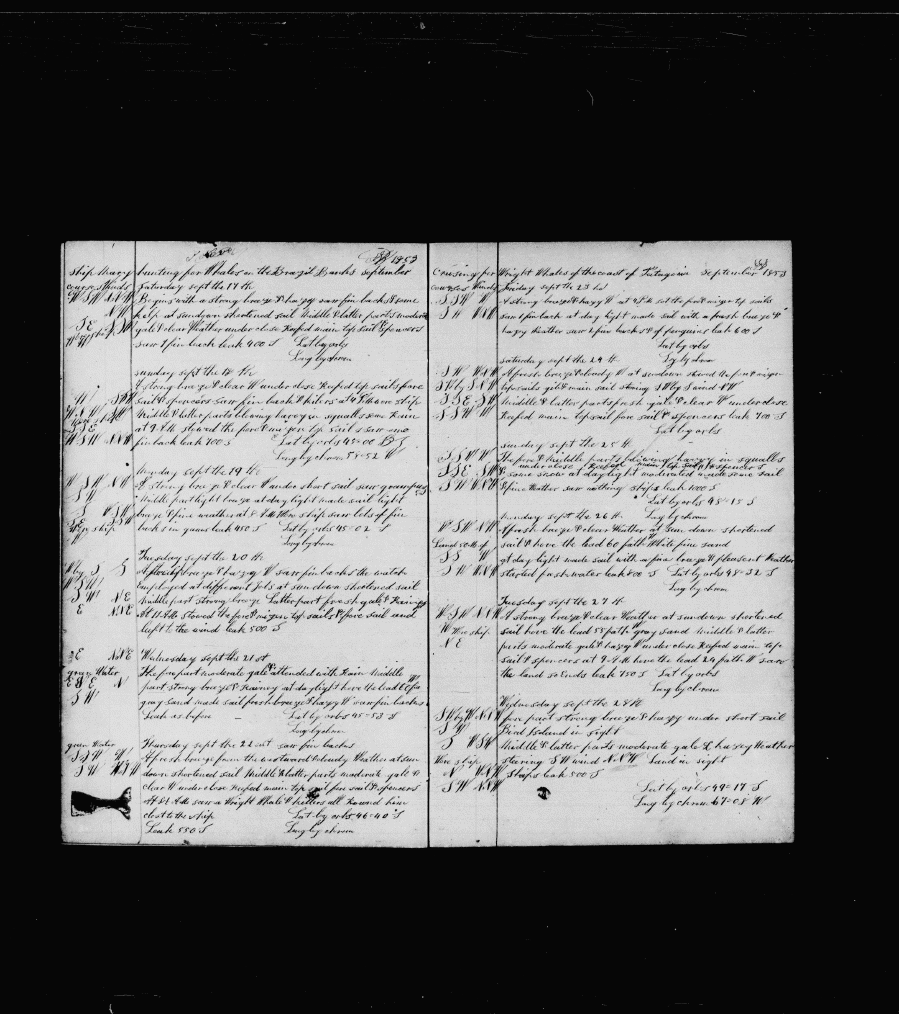 1853
Ship Mary hunting for Whales on the Brazil Banks September
courses Winds Saturday sept the 17 th
W S W N N W Begins with a strong breeze & hazy saw fin backs & some
N W kelp at sundown shortened sail Middle & latter parts moderate
S E gale & clear Weather under close Reefed main top sail & spencers
saw 1 fin back leak 400 S Lat by orbs
Long by chrom
sunday sept the 18 th
A strong breeze & clear W under close Reefed top sails fore
sail & spencers saw fin back & killers at 4 P M wore ship
Middle & latter parts blowing heavy in squalls some Rain
at 9 A M stowed the fore & mizen top sails saw one
W S W N N W fin back leak 700 S Lat by orbs 45=00 S
Long by chrom 58=52 W
Monday sept the 19 th
A strong breeze & clear W under short sail saw
Middle part light breeze at day light made sail light
breeze & fine weather at 8 A M Wore ship saw lots of fin
Wore ship backs in gams leak 450 S Lat by orbs 45=02 S
Long by chrom
Tuesday sept the 20 th
W by S S A fresh breeze & hazy W saw fin backs the watch
employed at different jobs at sun down shortened sail
S W N E Middle part strong breeze Latter part fresh gale & Rainy
E N N E At 11 A M stowed the fore & mizen top sails & fore sail and
luft to the wind leak 500 S
S E N N E Wednesday sept the 21 st
green Water The fore part moderate gale attended with Rain Middle
E S E N part strong breeze & Rainey at daylight hove the lead 60 fa
S W gray sand made sail fresh breeze & hazy W saw fin backs
Leak as before Lat by orbs 45=53 S
Long by chrom
green Water Thursday sept the 22 st saw fin backs
S S W W A fresh breeze from the westward & cloudy Weather at sun
S W down shortened sail Middle & latter parts moderate gale &
clear W under close Reefed main top sail fore sail & spencers
At 11 A M saw a Wright Whale & killers all Round him
close to the ship Lat by orbs 46=40 S
Leak 550 S Long by chrom
Cruising for Wright Whales of the coast of Patagonia September 1853
courses Winds Friday sept the 23 rd
S S W W A strong breeze & hazy W at 4 P M set the fore & mizen top sails
S W W N W saw 1 fin back at day light made sail with a fresh breeze &
hazy Weather saw 1 fin backs & penguins leak 600 S
Lat by orbs
saturday sept the 24 th Lg by chrom
S W W N W A fresh breeze & cloudy W at sundown stowed the fore & mizen
top sails gib & main sail steering S W by S wind N W
S S E S W Middle & latter parts fresh gale & clear W under close
S S W W Reefed main top sail fore sail & spencers leak 700 S
Lat by orbs
sunday sept the 25 th
S S W W The fore & Middle parts blowing heavy in squalls
under close Reefed main top sail & spencers
S S E S W & some snow at day light moderated made some sail
S W W N W & fine Weather saw nothing ship leak 1000 S
Lat by orbs 48=15 S
Monday sept the 26 th Long by chrom
W S W N W A fresh breeze & clear Weather at sun down shortened
sail & hove the lead 60 fath White fine sand
S S W at day light made sail with a fine breeze & pleasent Weather
S W W N W started fresh water leak 800 S Lat by orbs 48=32 S
Long by chrom
Tuesday sept the 27 th
W S W N N W A strong breeze & clear Weather at sundown shortened
W Wore ship sail hove the lead 55 fath gray sand Middle & latter
N E parts moderate gale & hazy W under close Reefed main top
sail & spencers at 9 A M hove the lead 29 fath W saw
the land so Ends leak 750 S Lat by orbs
Long by chrom
Wednesday sept the 28 th
S W by W N N W fore part strong breeze & hazy under short sail
S W Bird Island in sight
S W S W Middle & latter parts moderate gale & hazey Weather
Wore ship steering S W wind N N W Land in sight
N W N W Ships leak 500 S
S W N N W Lat by orbs 49=17 S
Long by chrom 67=08 W